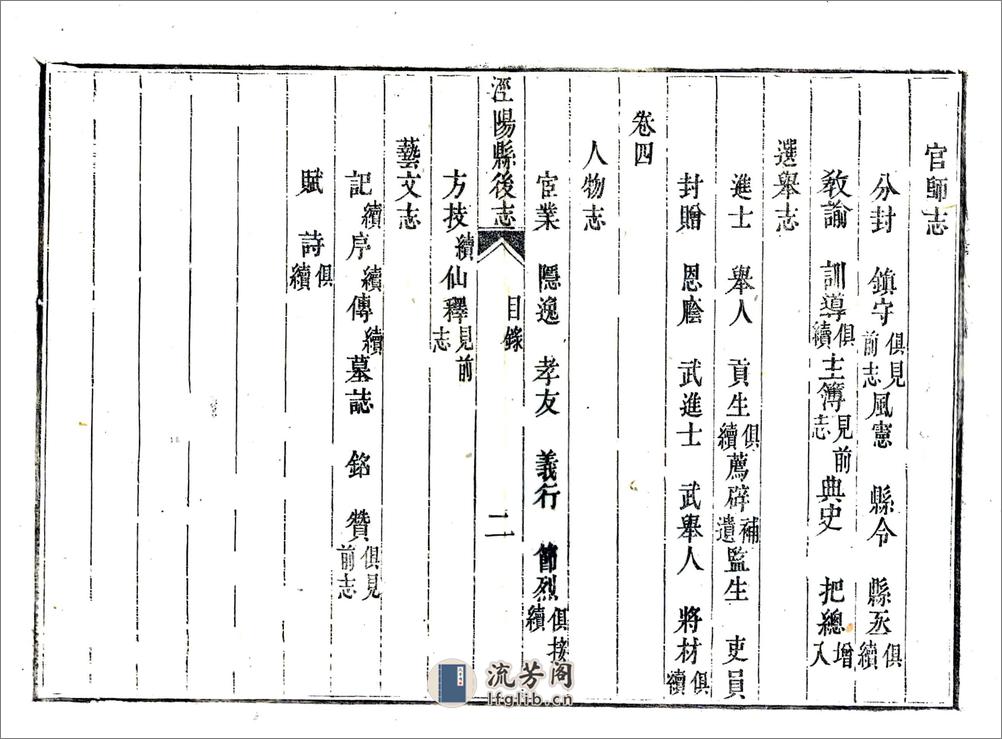 官師志
分封 鎮守俱見前志風憲 縣令 縣丞俱續
教諭 訓導俱續主簿見前志典史 把總增入
選舉志
進士 舉人 貢生俱續薦辟補遺監生 吏員
封贈 恩廕 武進士 武舉人 將材俱續
卷四
人物志
宦業 隱逸 孝友 義行 節烈俱按續
涇陽縣後志 目錄 二
方技續仙釋見前志
藝文志
記續序續傳續墓誌 銘 贊俱見前志
賦 詩俱續
流芳阁
lfglib.cn